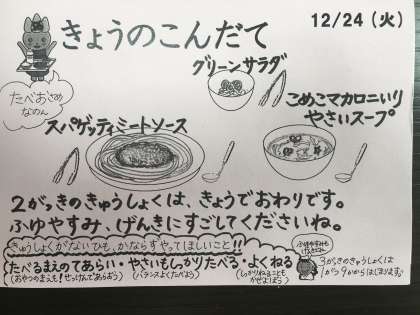 きょうのこんだて
12/24（火）
グリーンサラダ
たべおさめ
なのん
スパゲッティミートソース
こめこマカロニいり
やさいスープ
2がっきのきゅうしょくは、きょうでおわりです。
ふゆやすみ、げんきにすごしてくださいね。
きゅうしょくがないひも、かならずやってほしいこと!!
たべるまえのてあらい・やさいもしっかりたべる・よくねる
(おやつのまえも!せっけんであらおう)
(バランスよくたべよう)
ふゆやすみも
3がきのきゅうしょくは
1がつ9かからはじまります。